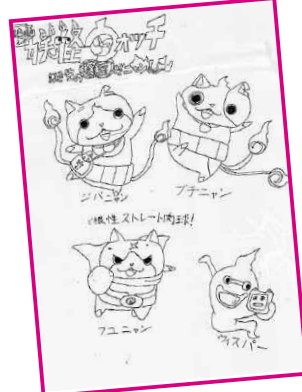 妖怪ウォッチ
ジバニャン
ブチニャン
根性ストレート肉球!
フユニャン
ウィスパー